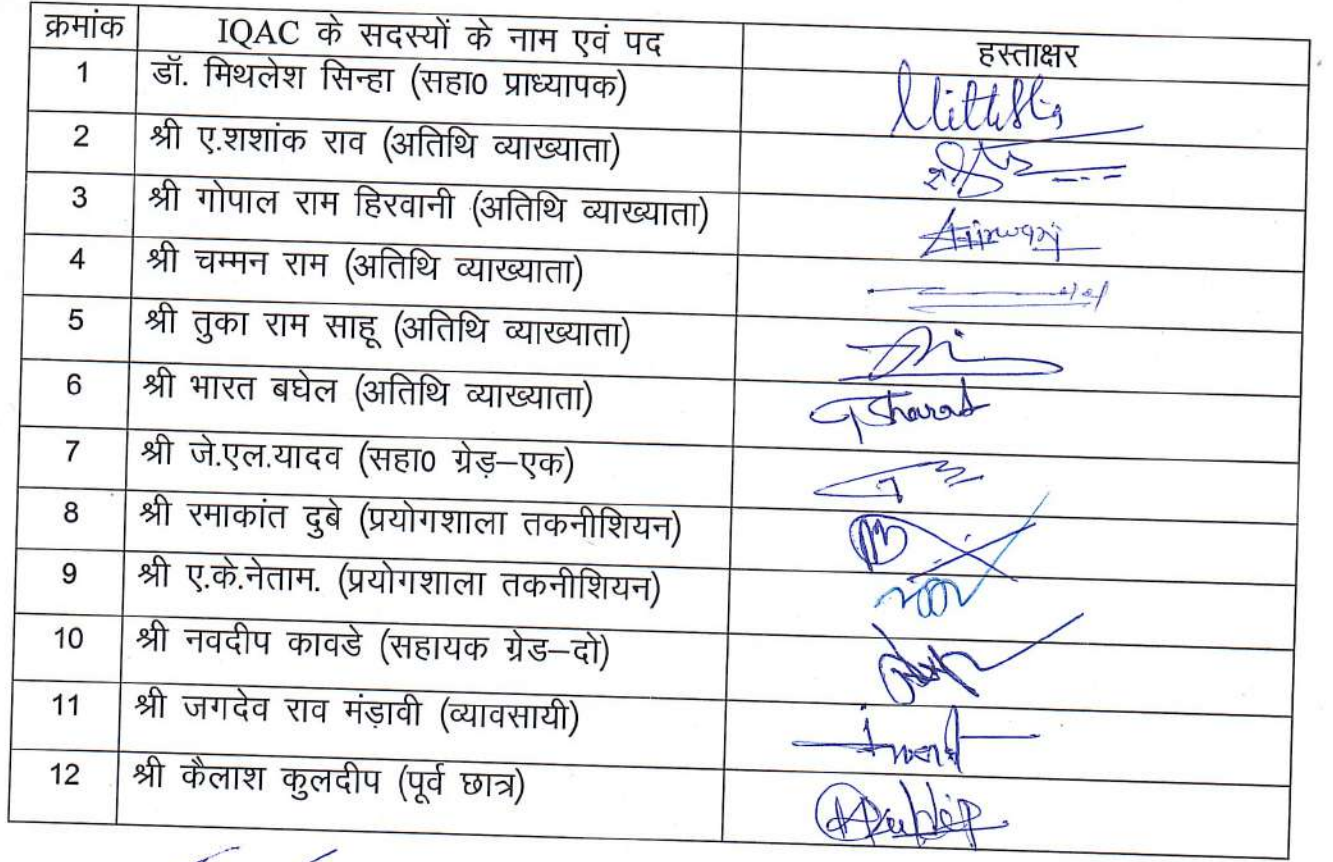 क्रमांक IQAC के सदस्यों के नाम एवं पद हस्ताक्षर
1 डॉ. मिथलेश सिन्हा (सहा0 प्राध्यापक)
2 श्री ए.शशांक राव (अतिथि व्याख्याता)
3 श्री गोपाल राम हिरवानी (अतिथि व्याख्याता)
4 श्री चम्मन राम (अतिथि व्याख्याता)
5 श्री तुका राम साहू (अतिथि व्याख्याता)
6 श्री भारत बघेल (अतिथि व्याख्याता)
7 श्री जे.एल.यादव (सहा0 ग्रेड़–एक)
8 श्री रमाकांत दुबे (प्रयोगशाला तकनीशियन)
9 श्री ए.के.नेताम. (प्रयोगशाला तकनीशियन)
10 श्री नवदीप कावडे (सहायक ग्रेड–दो)
11 श्री जगदेव राव मंड़ावी (व्यावसायी)
12 श्री कैलाश कुलदीप (पूर्व छात्र)